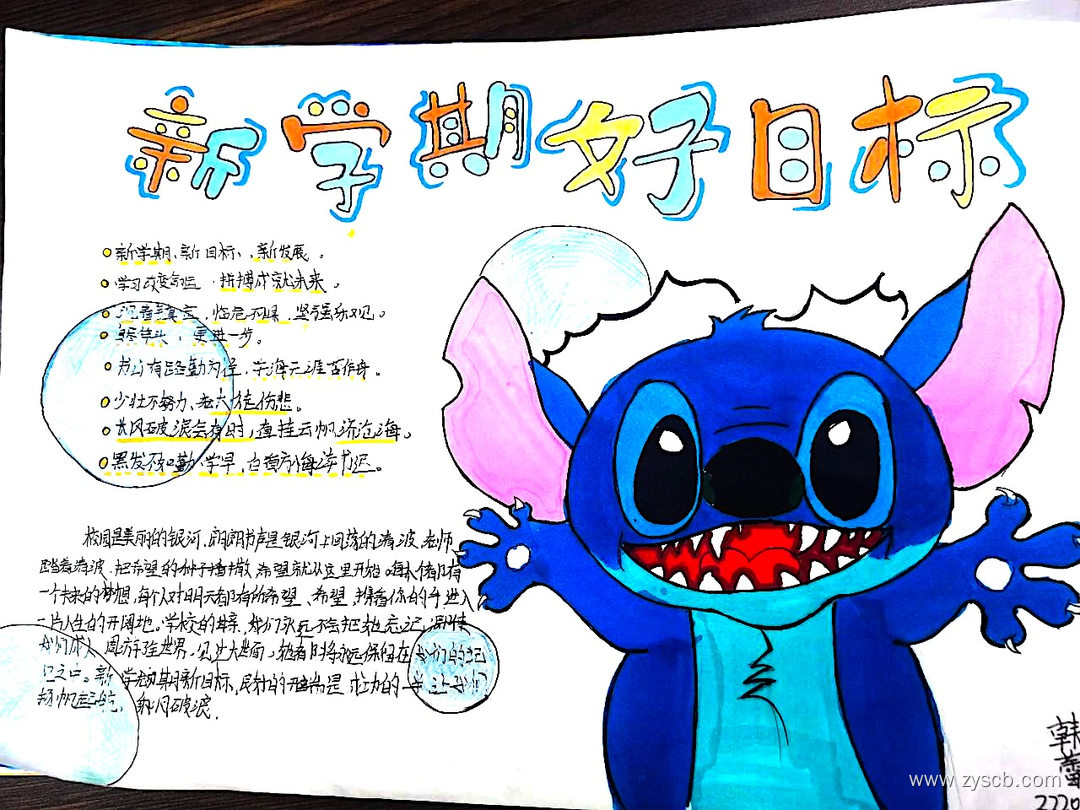 新学期好目标
新学期、新目标、新发展。
学习改变命运，拼搏成就未来。
临危不惧，坚强乐观。
更进一步。
书山有路勤为径，学海无涯苦作舟。
少壮不努力、老大徒伤悲。
长风破浪会有时，直挂云帆济沧海。
黑发不知勤学早，白首方悔读书迟。
校园是美丽的银河，朗朗书声是银河上回荡的清波，老师
踏着清波，把希望的种子播撒，希望就从这里开始。每人都有
一个未来的梦想，每个人对明天都有的希望、希望，携着你的手进入
一片人生的开阔地。学校的母亲，我们永远不会把她忘记，
我们成人，周游了世界，见过大世面，她都时将永远保留在我们的记
忆之中。新学期新目标，良好的开端是成功的一半，让我们
扬帆起航，乘风破浪．
韩
蕾
2220
www.zyscb.com